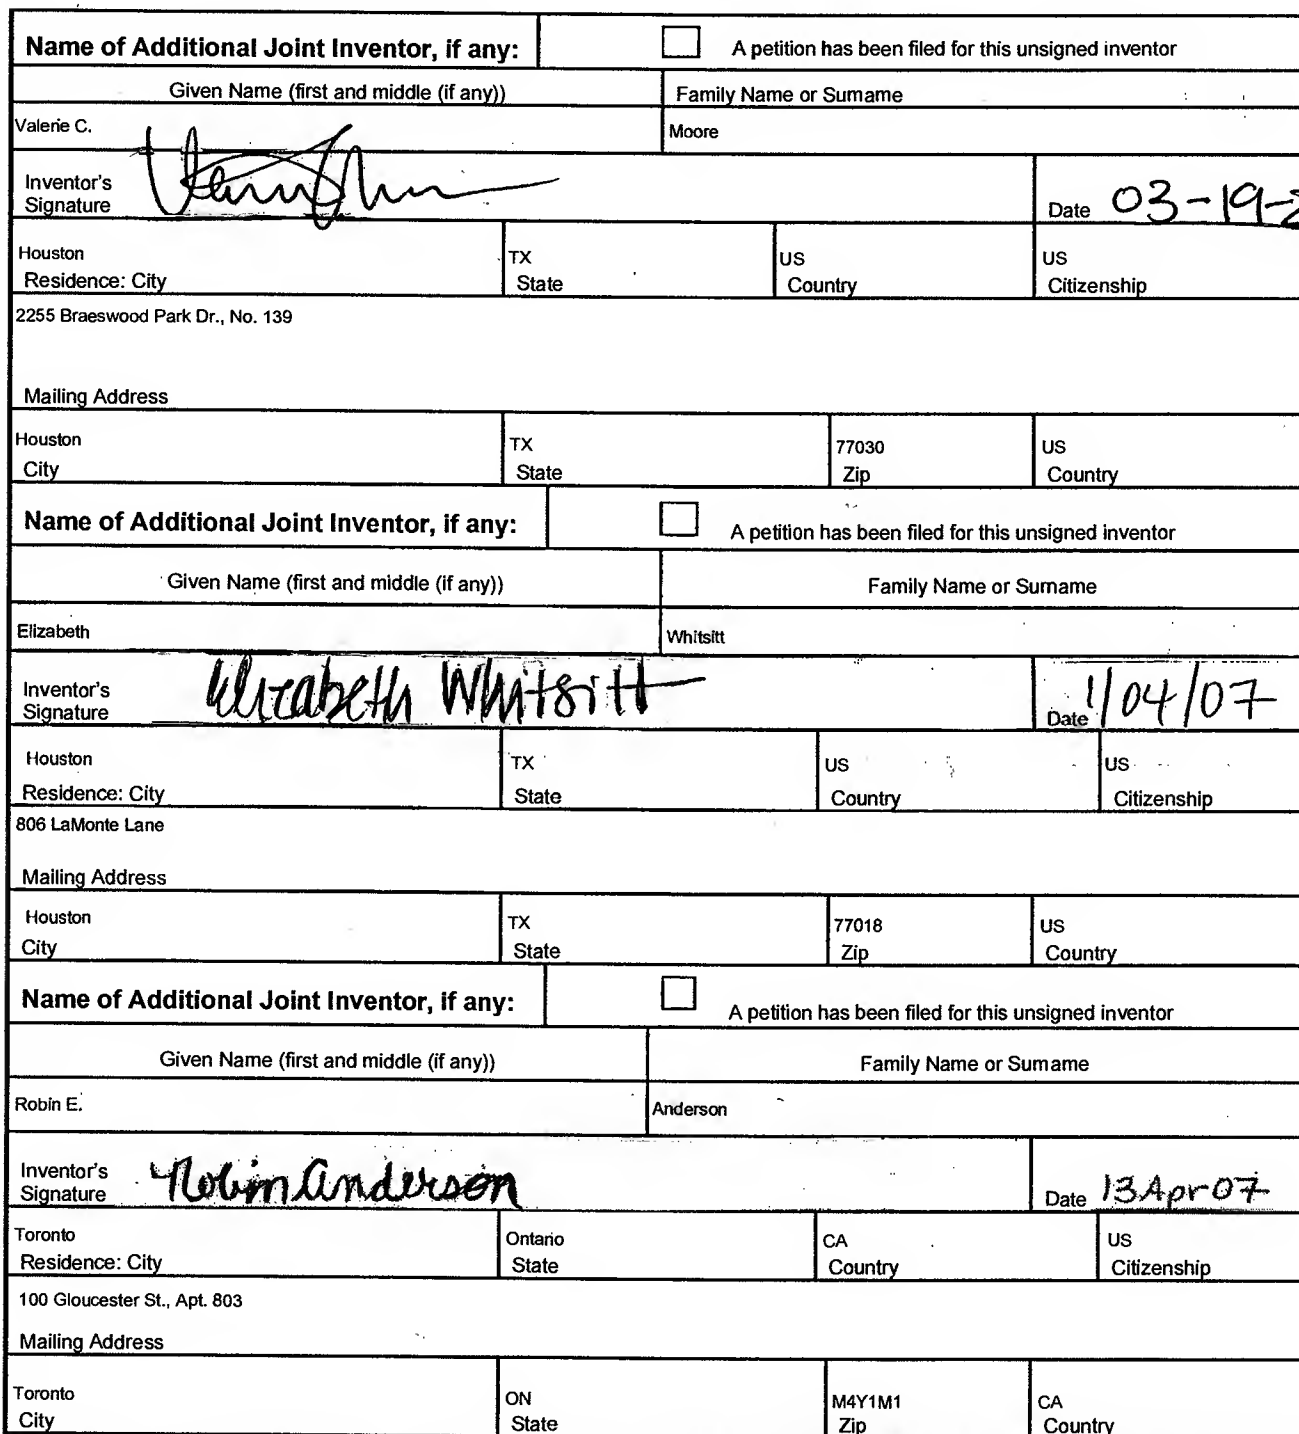 Name of Additional Joint Inventor, if any: A petition has been filed for this unsigned inventor
Given Name (first and middle (if any)) Family Name or Surname
Valerie C. Moore
Inventor's
Signature Date 03-19-2
Houston TX US US
Residence: City State Country Citizenship
2255 Braeswood Park Dr., No. 139
Mailing Address
Houston TX 77030 US
City State Zip Country
Name of Additional Joint Inventor, if any: A petition has been filed for this unsigned inventor
Given Name (first and middle (if any)) Family Name or Surname
Elizabeth Whitsitt
Inventor's
Signature Elizabeth Whitsitt Date 1/04/07
Houston TX US US
Residence: City State Country Citizenship
806 LaMonte Lane
Mailing Address
Houston TX 77018 US
City State Zip Country
Name of Additional Joint Inventor, if any: A petition has been filed for this unsigned inventor
Given Name (first and middle (if any)) Family Name or Surname
Robin E. Anderson
Inventor's
Signature Robin Anderson Date 13Apr07
Toronto Ontario CA US
Residence: City State Country Citizenship
100 Gloucester St., Apt. 803
Mailing Address
Toronto ON M4Y1M1 CA
City State Zip Country